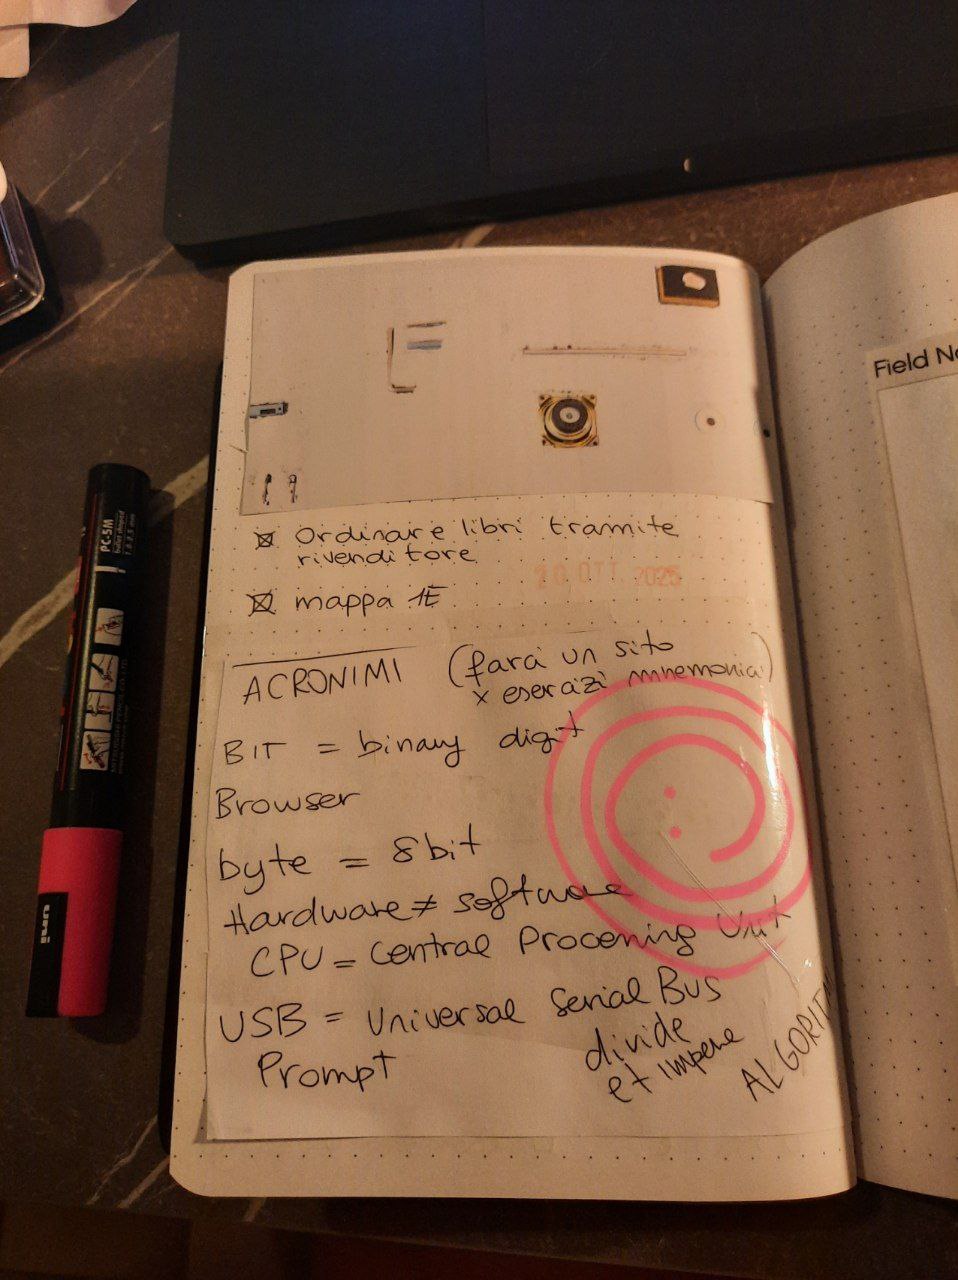 Field
☒ Ordinare libri tramite
rivenditore
20 OTT. 2025
☒ mappa 1E
ACRONIMI (farà un sito
x esercizi mnemonici)
BIT = binary digit
Browser
byte = 8 bit
Hardware ≠ software
CPU = Central Processing Unit
USB = Universal Serial Bus
Prompt
divide
et impera
ALGORIT
PC-5M
bullet shaped
1.8-2.5 mm
uni